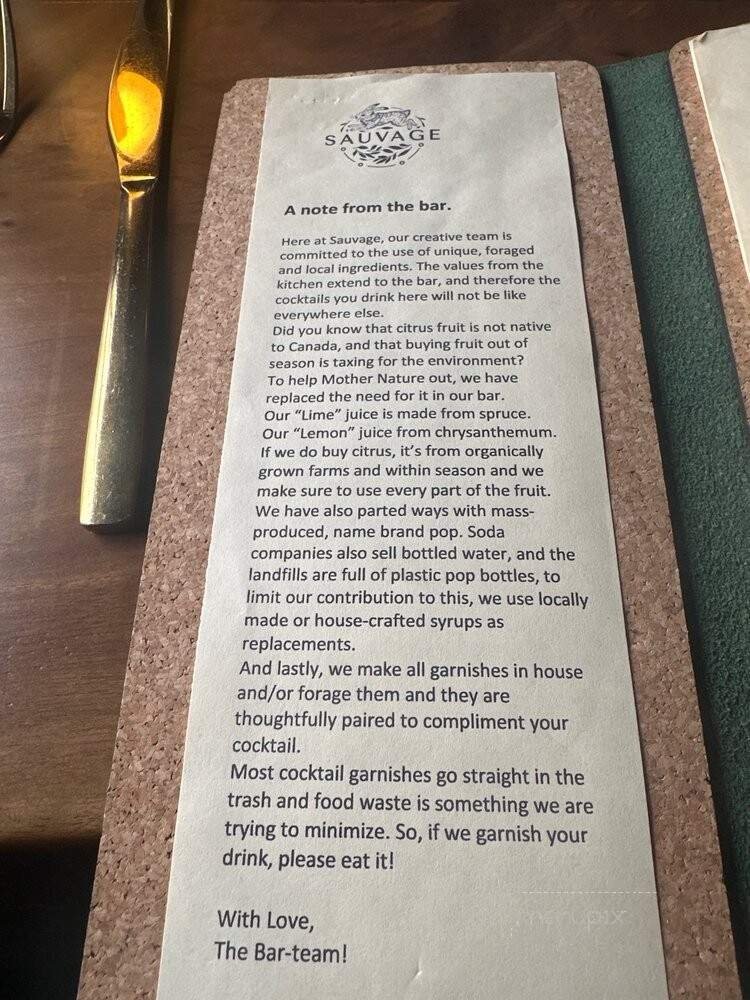 SAUVAGE
A note from the bar.
Here at Sauvage, our creative team is
committed to the use of unique, foraged
and local ingredients. The values from the
kitchen extend to the bar, and therefore the
cocktails you drink here will not be like
everywhere else.
Did you know that citrus fruit is not native
to Canada, and that buying fruit out of
season is taxing for the environment?
To help Mother Nature out, we have
replaced the need for it in our bar.
Our “Lime” juice is made from spruce.
Our “Lemon” juice from chrysanthemum.
If we do buy citrus, it’s from organically
grown farms and within season and we
make sure to use every part of the fruit.
We have also parted ways with mass-
produced, name brand pop. Soda
companies also sell bottled water, and the
landfills are full of plastic pop bottles, to
limit our contribution to this, we use locally
made or house-crafted syrups as
replacements.
And lastly, we make all garnishes in house
and/or forage them and they are
thoughtfully paired to compliment your
cocktail.
Most cocktail garnishes go straight in the
trash and food waste is something we are
trying to minimize. So, if we garnish your
drink, please eat it!
With Love,
The Bar-team!